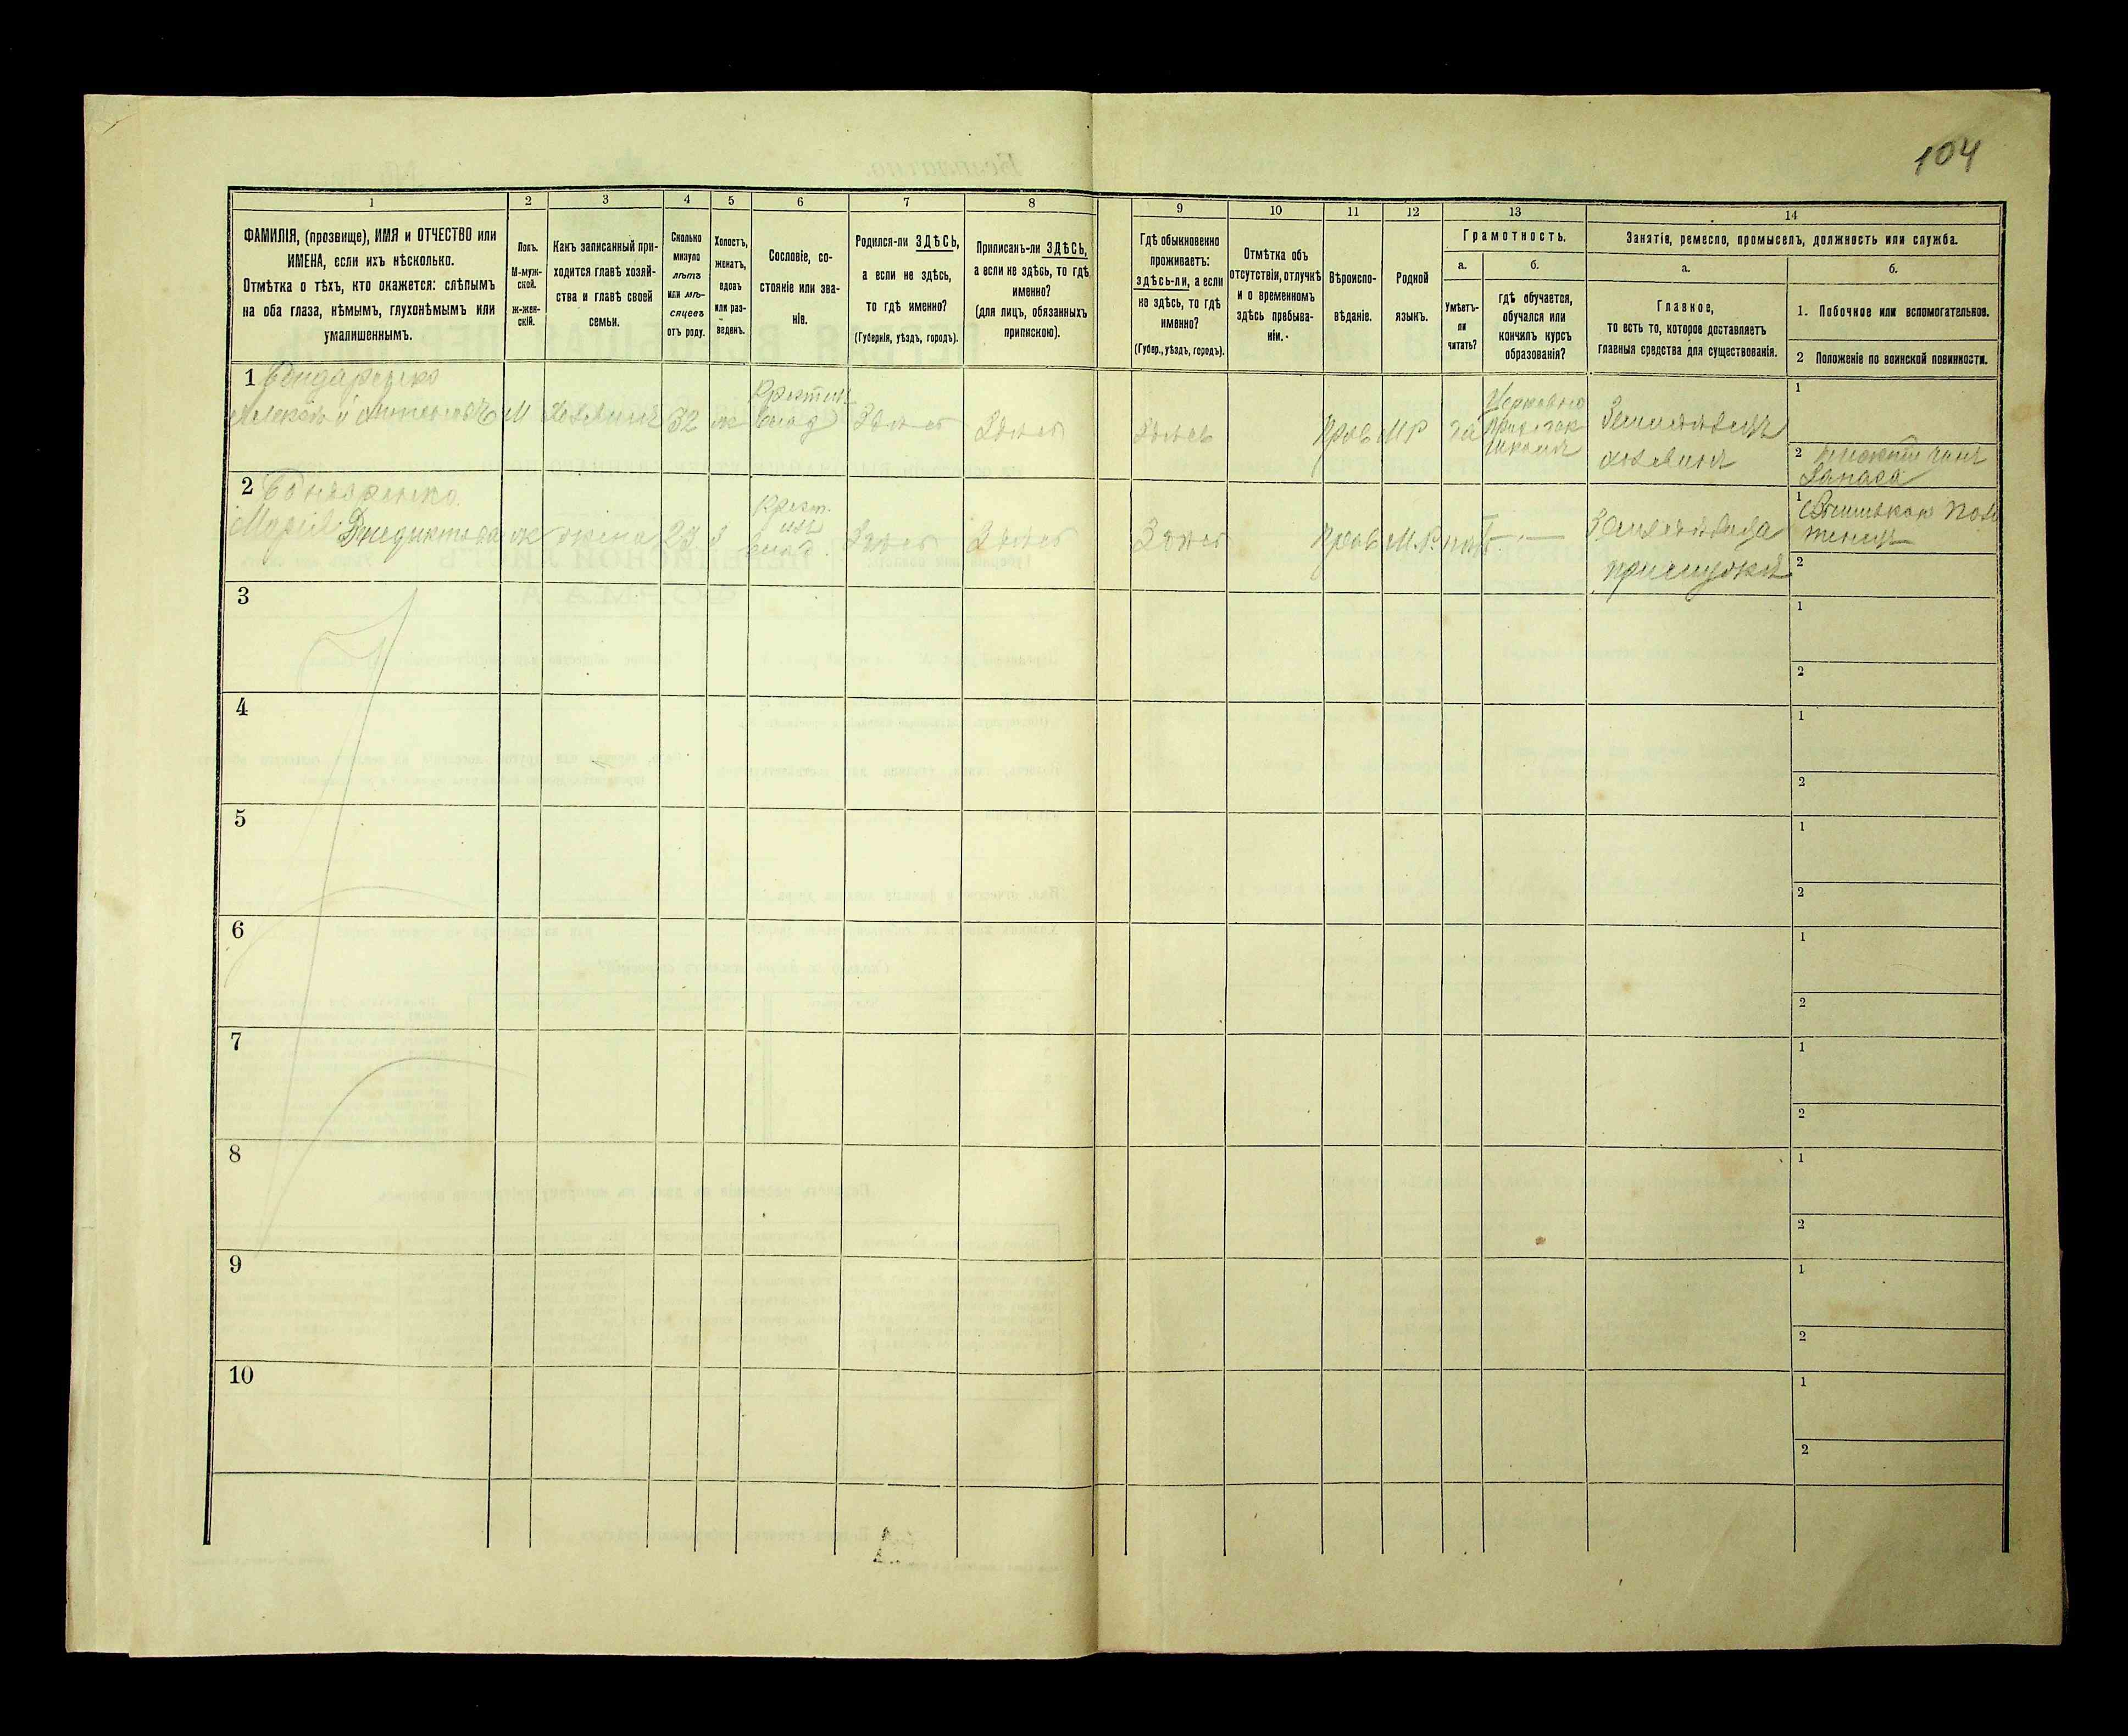 104
1
2
3
4
5
6
7
8
9
10
11
12
13
14
ФАМИЛІЯ, (прозвище), ИМЯ и ОТЧЕСТВО или
ИМЕНА, если ихъ нѣсколько.
Отмѣтка о тѣхъ, кто окажется: слѣпымъ
на оба глаза, нѣмымъ, глухонѣмымъ или
умалишеннымъ.
Полъ.
М-муж-
ской.
ж-жен-
скій.
Какъ записанный при-
ходится главѣ хозяй-
ства и главѣ своей
семьи.
Сколько
минуло
лѣтъ
или мѣ-
сяцевъ
отъ роду.
Холостъ,
женатъ,
вдовъ
или раз-
веденъ.
Сословіе, со-
стояніе или зва-
ніе.
Родился-ли ЗДѢСЬ,
а если не здѣсь,
то гдѣ именно?
(Губернія, уѣздъ, городъ).
Приписанъ-ли ЗДѢСЬ,
а если не здѣсь, то гдѣ
именно?
(для лицъ, обязанныхъ
припискою).
Гдѣ обыкновенно
проживаетъ:
здѣсь-ли, а если
не здѣсь, то гдѣ
именно?
(Губер., уѣздъ, городъ).
Отмѣтка объ
отсутствіи, отлучкѣ
и о временномъ
здѣсь пребыва-
ніи.
Вѣроиспо-
вѣданіе.
Родной
языкъ.
Грамотность.
а.
Умѣетъ-
ли
читать?
б.
гдѣ обучается,
обучался или
кончилъ курсъ
образованія?
Занятія, ремесло, промыселъ, должность или служба.
а.
Главное,
то есть то, которое доставляетъ
главныя средства для существованія.
б.
1. Побочное или вспомогательное.
2 Положеніе по воинской повинности.
1 Бондаренко
Алексѣй
М
хозяинъ
32
ж
Здѣсь
Здѣсь
Здѣсь
Прав
М Р
да
Церковно
школа
Земледѣлецъ
хозяинъ
1
2
Запаса
2 Бондаренко
Марія
ж
жена
Крест.
Здѣсь
Здѣсь
Здѣсь
Прав
М. Р.
нѣтъ
—
1
2
3
1
2
4
1
2
5
1
2
6
1
2
7
1
2
8
1
2
9
1
2
10
1
2